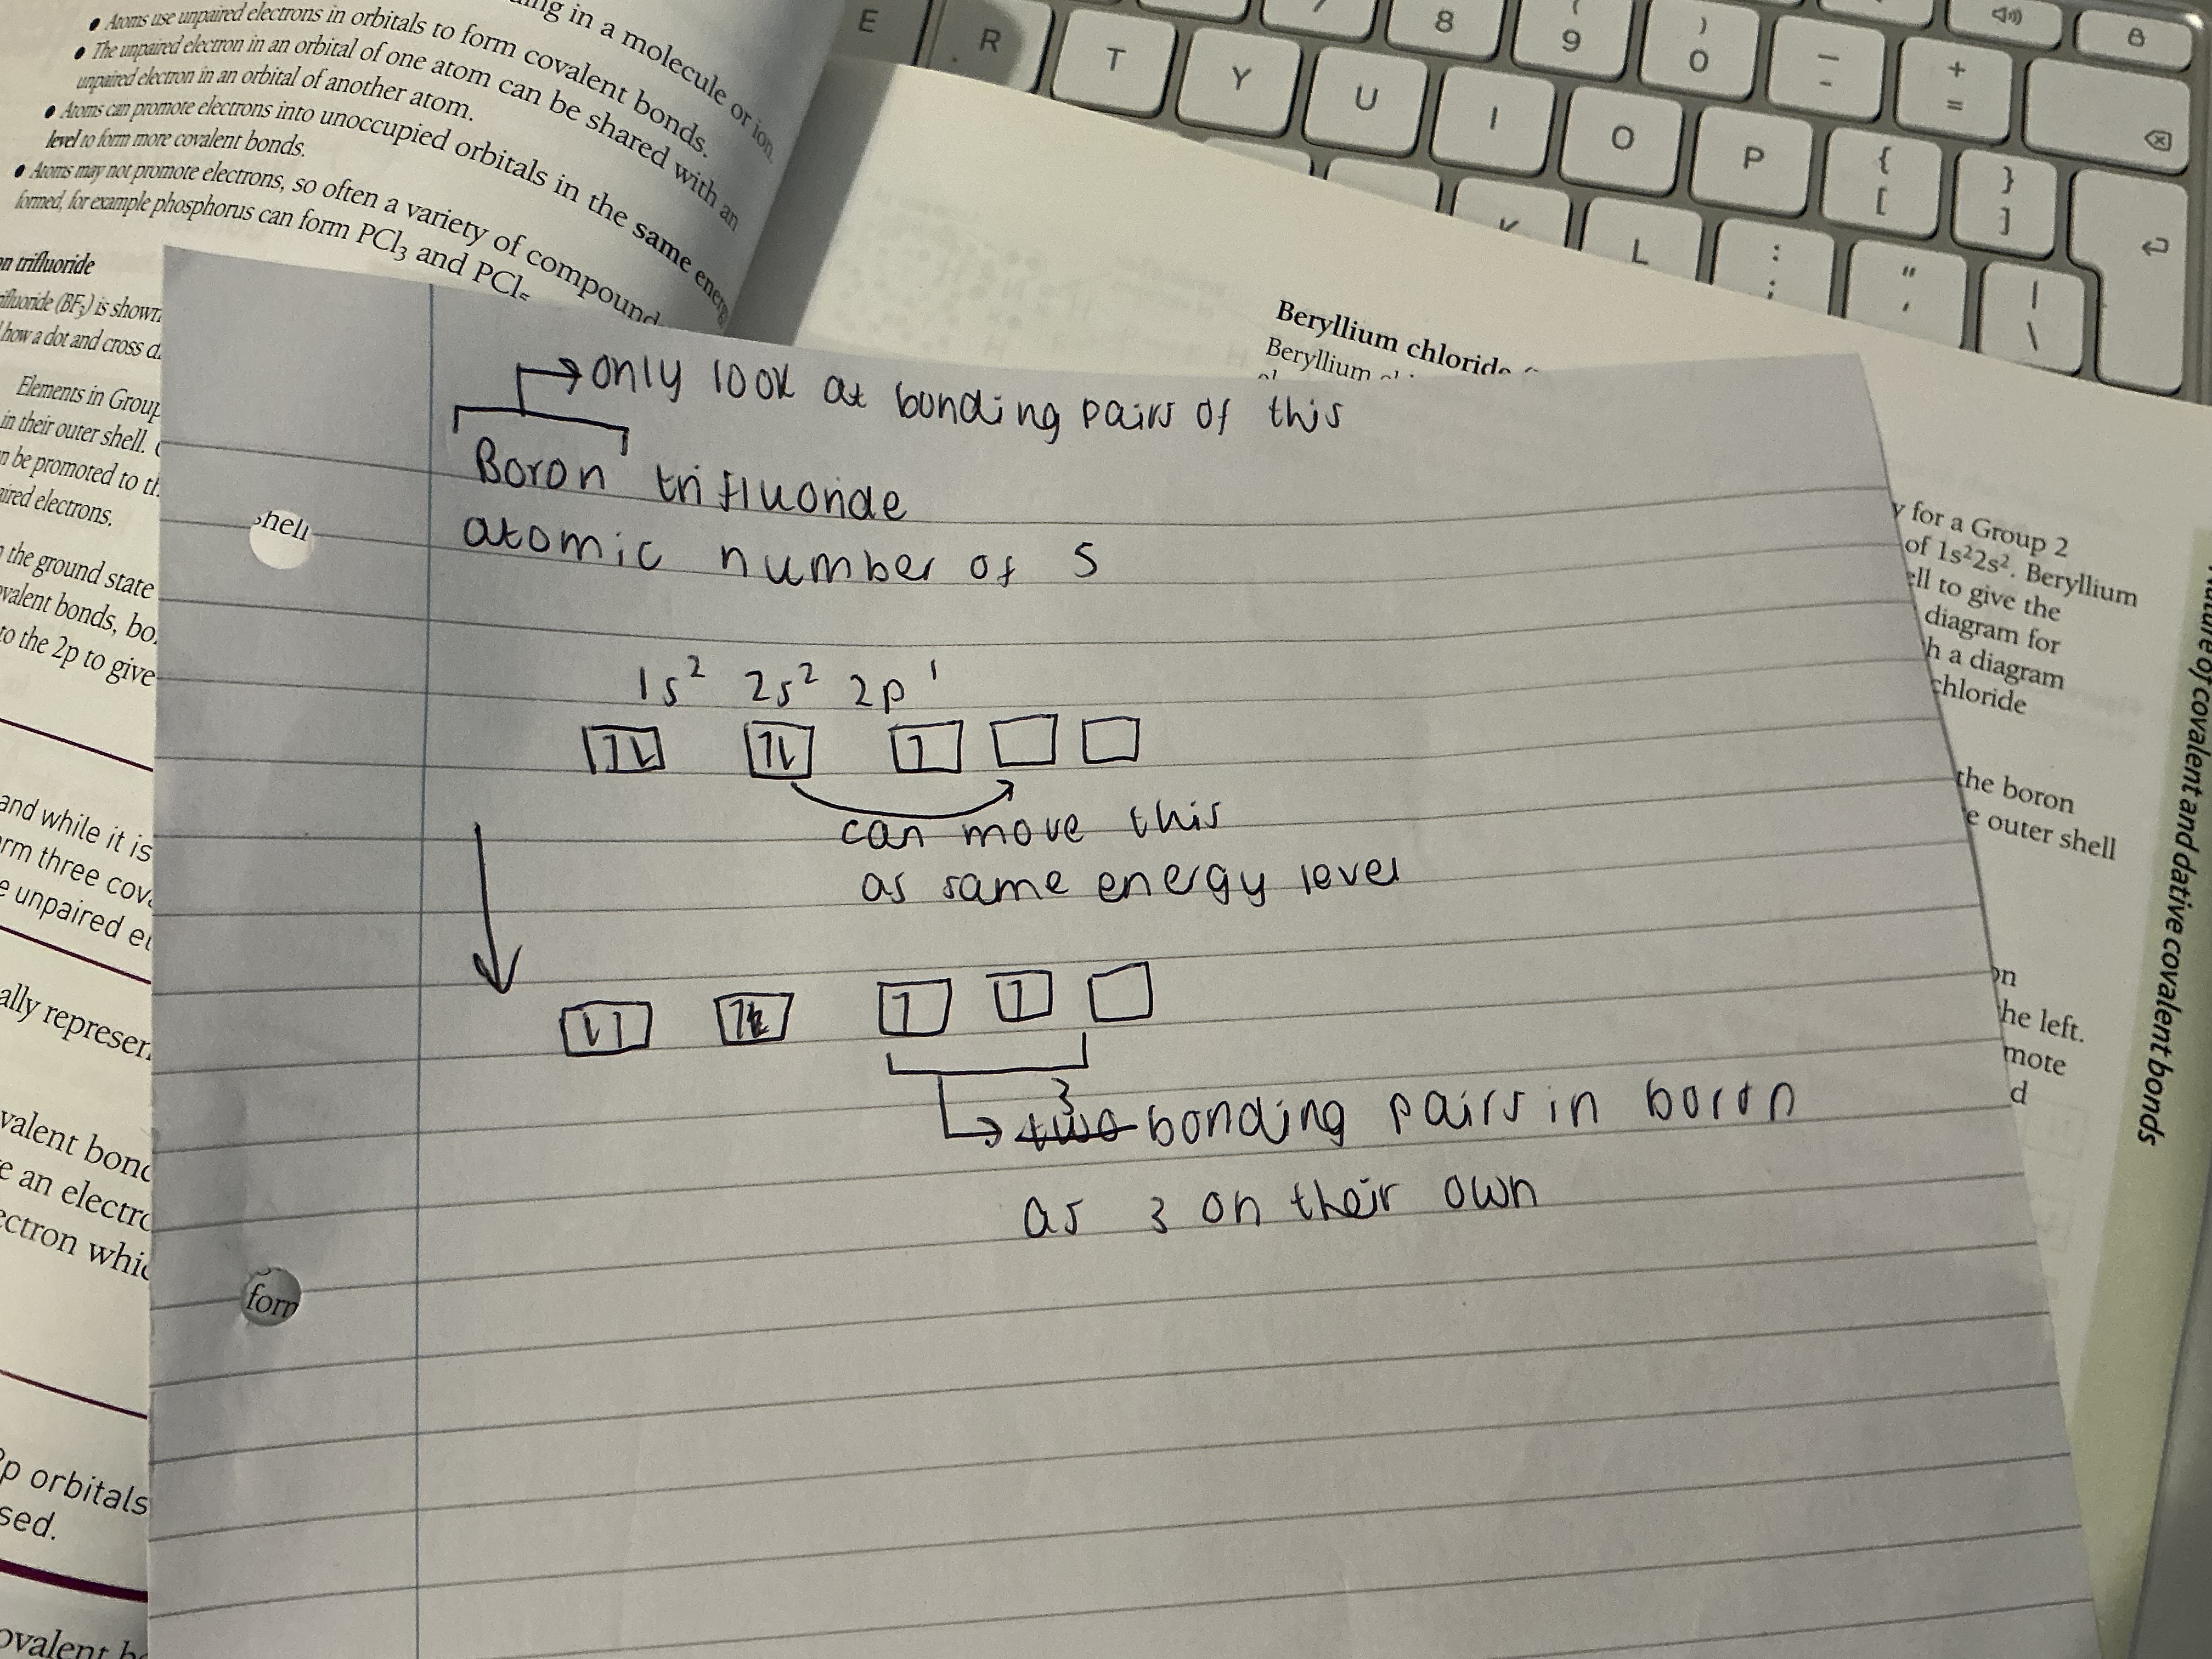 ing in a molecule or ion.
• Atoms use unpaired electrons in orbitals to form covalent bonds.
• The unpaired electron in an orbital of one atom can be shared with an
unpaired electron in an orbital of another atom.
• Atoms can promote electrons into unoccupied orbitals in the same energy
level to form more covalent bonds.
• Atoms may not promote electrons, so often a variety of compound
formed, for example phosphorus can form PCl3 and PCl5
on trifluoride
ifluoride (BF3) is shown
how a dot and cross d
Elements in Group
in their outer shell.
n be promoted to th
aired electrons.
shell
the ground state
ovalent bonds, bo
to the 2p to give
and while it is
rm three cov
e unpaired el
ally represen
valent bond
e an electro
ectron whic
form
2p orbitals
sed.
ovalent b
E R T Y U I O P { [ } ]
7 8 ( 9 ) 0 _ - + =
K L : ; " ' | \
Beryllium chloride
Beryllium
y for a Group 2
of 1s²2s². Beryllium
ell to give the
diagram for
h a diagram
chloride
the boron
e outer shell
on
he left.
mote
d
Nature of covalent and dative covalent bonds
→ only look at bonding pairs of this
Boron trifluoride
atomic number of 5
1s² 2s² 2p¹
can move this
as same energy level
→ two 3 bonding pairs in boron
as 3 on their own